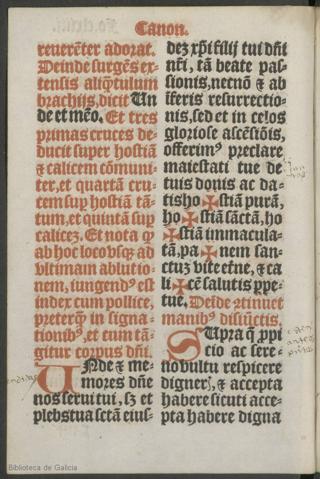 Canon.
reuerēter adorat.
Deinde surgēs ex-
tensis aliq̄tulum
brachijs, dicit Un
de et mēo. Et tres
primas cruces de-
ducit super hostiā
⁊ calicem cōmuni
ter, et quartā cru-
cem suꝑ hostiā tā-
tum, et quintā sup
calicē. Et nota ꝙ
ab hoc loco vsqꝫ ad
vltimam ablutio-
nem, iungendꝰ est
index cum pollice,
preterq̄ in signa-
tionibꝰ, et cum tā-
gitur corpus dn̄i.
UNde ⁊ me-
mores dn̄e
nos serui tui, sꝫ et
plebs tua sctā eius-
deꝫ xp̄i filij tui dn̄i
nr̄i, tā beate pas-
sionis, necnō ⁊ ab
īferis resurrectio-
nis, sed et in celos
gloriose ascēsiōis,
offerimꝰ preclare
maiestati tue de
tuis donis ac da-
tis ho✠stiā purā,
ho✠stiā sāctā, ho
✠stiā immacula-
tā, pa✠nem san-
ctuꝫ vite et̄ne, ⁊ ca
li✠cē salutis ꝑpe-
tue. Deīde ꝯtinuet
manibꝰ disiūctis.
SUpra q̄ ꝓpi
cio ac sere-
no vultu respicere
dignerꝭ, ⁊ accepta
habere sicuti acce-
pta habere digna
Biblioteca de Galicia